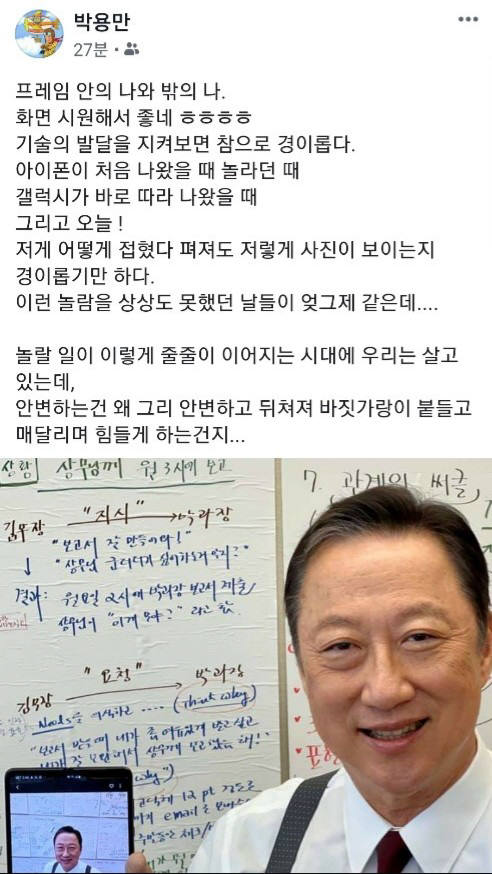 박용만
27분
프레임 안의 나와 밖의 나.
화면 시원해서 좋네 ㅎㅎㅎㅎ
기술의 발달을 지켜보면 참으로 경이롭다.
아이폰이 처음 나왔을 때 놀라던 때
갤럭시가 바로 따라 나왔을 때
그리고 오늘 !
저게 어떻게 접혔다 펴져도 저렇게 사진이 보이는지
경이롭기만 하다.
이런 놀람을 상상도 못했던 날들이 엊그제 같은데....
놀랄 일이 이렇게 줄줄이 이어지는 시대에 우리는 살고
있는데,
안변하는건 왜 그리 안변하고 뒤쳐져 바짓가랑이 붙들고
매달리며 힘들게 하는건지...
상황 상무님께 월 3시에 보고
7. 관계의 써클
김부장 "지시" 박과장
"보고서 잘 만들어라!"
결과: 월요일 2시에 박과장 보고서 제출
상무님이 "이게 뭐야?" 라고 함.
"요청"
김부장 박과장
Needs를 (Think)
12 pt
email